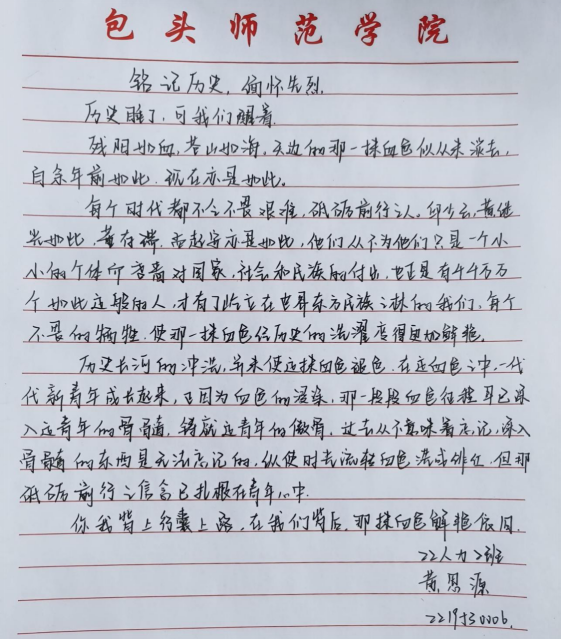 包头师范学院
铭记历史,缅怀先烈
历史睡了,可我们醒着
残阳如血,苍山如海,天边的那一抹血色似从未演去,
百余年前如此,现在亦是如此。
每个时代都不会不畏艰难,砥砺前行之人。邱少云,黄继
光如此,黄存瑞,岳起安亦是如此,他们从不为他们只是一个小
小的个体而吝啬对国家,社会和民族的付出,也正是有千千万万
个如此这般的人,才有了屹立在世界东方民族之林的我们,每个
不畏的牺牲,使那一抹血色经历史的洗濯度得更加鲜艳。
历史长河的冲洗,并未使这抹血色褪色,在这血色之中,一代
代新青年成长起来,正因为血色的渲染,那一段段血色征程早已深
入这青年的骨髓,铸就这青年的傲骨,过去从不意味着忘记,深入
骨髓的东西是无法忘记的,纵使时光流转血色流或绯红,但那
砥砺前行之信念已扎根在青年心中.
你我背上行囊上路,在我们背后,那抹血色鲜艳依旧.
22人力2班
黄恩源